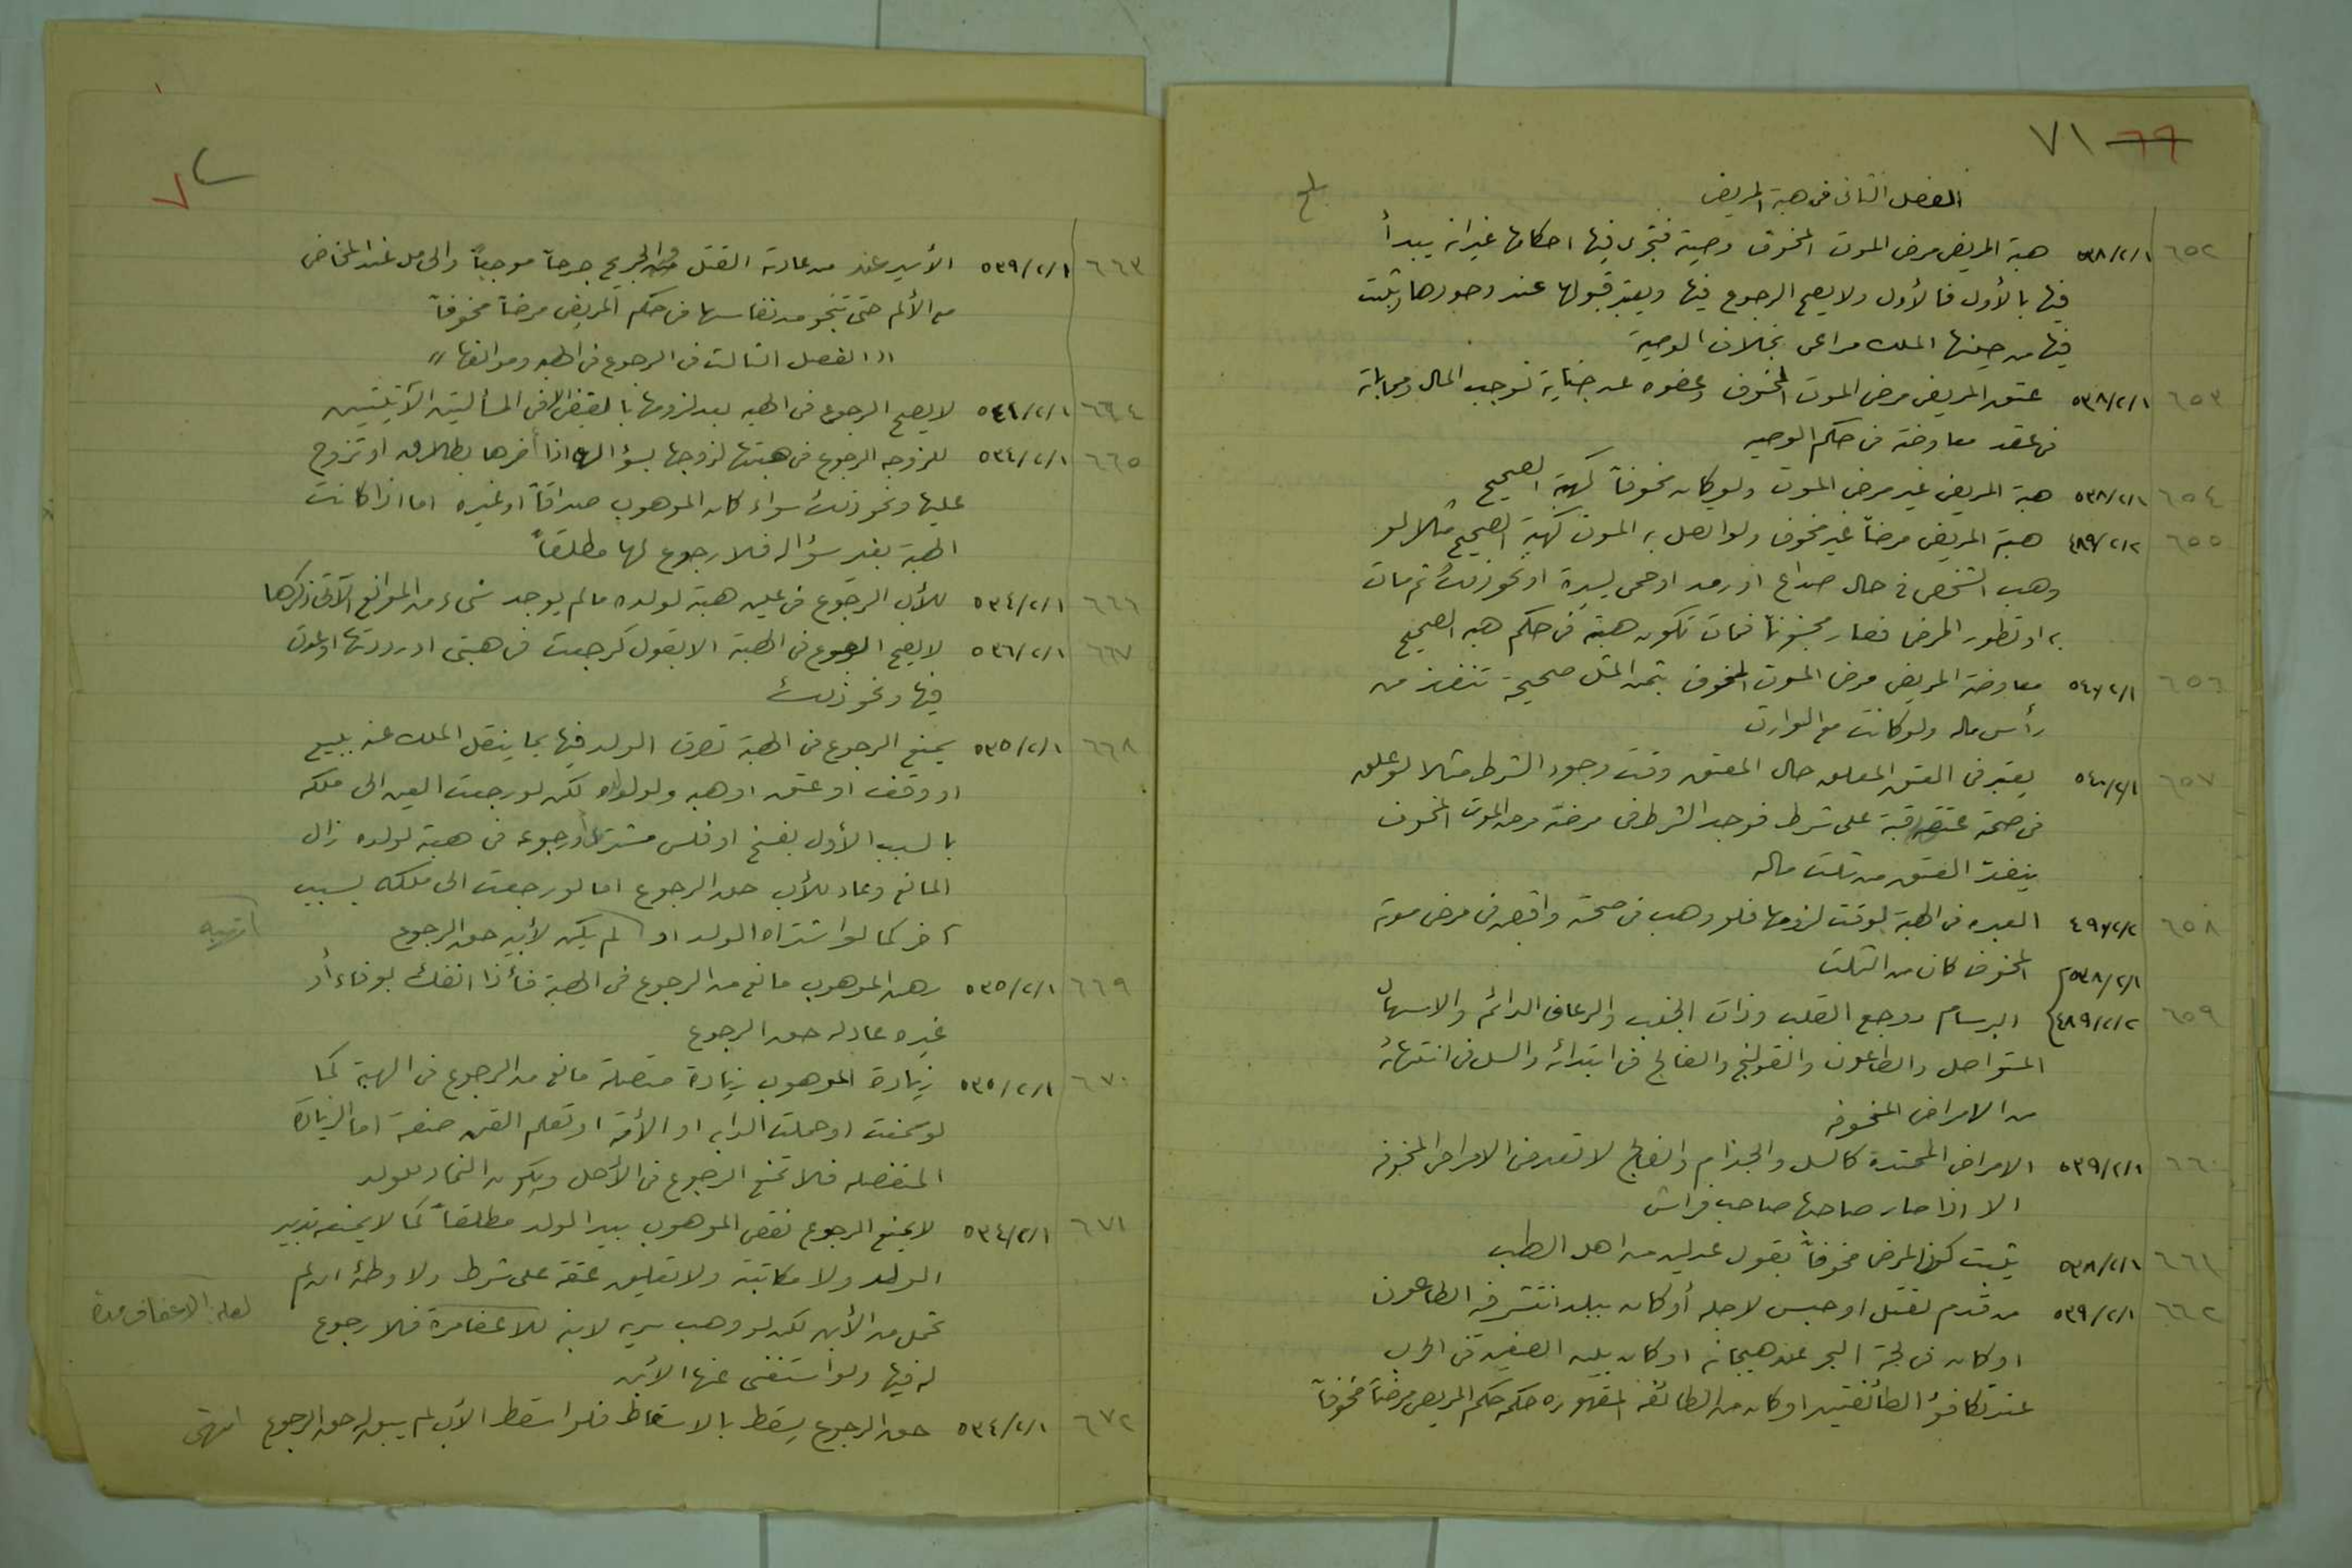 ٦٦ ٧١
بلغ
الفصل الثاني في هبة المريض
٦٥٢ ٥٣٨/٢/١ هبة المريض مرض الموت المخوف وصية فتجري فيها احكامها غير انه يبدأ
فيها بالأول فالأول ولا يصح الرجوع فيها ويعتبر قبولها عند وجودها ويثبت
فيها من حينها الملك مراعى بخلاف الوصية
٦٥٣ ٥٣٨/٢/١ عتق المريض مرض الموت المخوف وعفوه عن جناية توجب المال ومحاباته
في عقد معاوضة في حكم الوصيه
٦٥٤ ٥٣٨/٢/١ هبة المريض غير مرض الموت ولو كان مخوفاً كهبة الصحيح
٦٥٥ ٤٨٩/٢/٢ هبة المريض مرضاً غير مخوف ولو اتصل به الموت كهبة الصحيح مثلا لو
وهب الشخص في حال صداع او رمد او حمى يسيرة او نحو ذلك ثم مات
به او تطور المرض فصار مخوفاً فمات تكون هبته في حكم هبه الصحيح
٦٥٦ ٥٤٧/٢/١ معاوضة المريض مرض الموت المخوف بثمن المثل صحيحة تنفذ من
رأس ماله ولو كانت مع الوارث
٦٥٧ ٥٤٠/٢/١ يعتبر في العتق المعلق حال المعتق وقت وجود الشرط مثلا لو علق
في صحته عتق رقبة على شرط فوجد الشرط في مرضه مرض الموت المخوف
ينفذ العتق من ثلث ماله
٦٥٨ ٤٩٧/٢/٢ العبره في الهبة بوقت لزومها فلو وهب في صحته واقبض في مرض موته
المخوف كان من الثلث
٦٥٩ ٥٣٨/٢/١ ٤٨٩/٢/٢ البرسام ووجع القلب وذات الجنب والرعاف الدائم والاسهال
المتواصل والطاعون والقولنج والفالج في ابتدائه والسل في انتهائه
من الامراض المخوفه
٦٦٠ ٥٣٩/٢/١ الامراض الممتدة كالسل والجذام والفالج لا تعد من الامراض المخوفه
الا اذا صار صاحبها صاحب فراش
٦٦١ ٥٣٨/٢/١ يثبت كون المرض مخوفاً بقول عدلين من اهل الطب
٦٦٢ ٥٣٩/٢/١ من قدم لقتل او حبس لاجله أو كان ببلد انتشر فيه الطاعون
او كان في لجة البحر عند هيجانه او كان بين الصفين في الحرب
عند تكافؤ الطائفتين او كان من الطائفه المقهوره حكمه حكم المريض مرضاً مخوفاً
٧٢
٦٦٣ ٥٣٩/٢/١ الأسير عند من عادته القتل والجريح جرحاً موجباً والحامل عند المخاض
مع الألم حتى تنجو من نفاسها في حكم المريض مرضاً مخوفاً
" الفصل الثالث في الرجوع في الهبه وموانعها "
٦٦٤ ٥٤١/٢/١ لا يصح الرجوع في الهبه بعد لزومها بالقبض الا في المسألتين الآتيتين
٦٦٥ ٥٣٤/٢/١ للزوجه الرجوع في هبتها لزوجها بسؤاله اذا أضرها بطلاق او تزوج
عليها ونحو ذلك سواء كان الموهوب صداقاً او غيره اما اذا كانت
الهبة بغير سؤاله فلا رجوع لها مطلقاً
٦٦٦ ٥٣٤/٢/١ للأب الرجوع في عين هبته لولده ما لم يوجد شيء من الموانع الآتي ذكرها
٦٦٧ ٥٣٦/٢/١ لا يصح الرجوع في الهبة الا بقول كرجعت في هبتي او رددتها او عدت
فيها ونحو ذلك
٦٦٨ ٥٣٥/٢/١ يمنع الرجوع في الهبة تصرف الولد فيها بما ينقل الملك عنه ببيع
او وقف او عتق او هبه ولو لولده لكن لو رجعت العين الى ملكه
بالسبب الأول بفسخ او فلس مشتري أو رجوعه في هبة لولده زال
المانع وعاد للأب حق الرجوع اما لو رجعت الى ملكه بسبب
آخر كما لو اشتراه الولد او لم يكن لأبيه حق الرجوع
اتهبه
٦٦٩ ٥٣٥/٢/١ رهن الموهوب مانع من الرجوع في الهبة فأذا انفك بوفاء أو
غيره عاد له حق الرجوع
٦٧٠ ٥٣٥/٢/١ زيادة الموهوب زيادة متصلة مانع من الرجوع في الهبة كما
لو سمنت او حملت الدابه او الأمة او تعلم القن صنعة اما الزيادة
المنفصله فلا تمنع الرجوع في الأصل ويكون النماء للولد
٦٧١ ٥٣٤/٢/١ لا يمنع الرجوع نقص الموهوب بيد الولد مطلقاً كما لا يمنعه تدبير
الولد ولا مكاتبته ولا تعليق عتقه على شرط ولا وطئه ان لم
تحمل من الأبن لكن لو وهب سريه لابنه للاعفاف مرة فلا رجوع
لعله: الاعفاف مدة
له فيها ولو استغنى عنها الابن
٦٧٢ ٥٣٤/٢/١ حق الرجوع يسقط بالاسقاط فلو اسقط الأب لم يبق له حق الرجوع انتهى